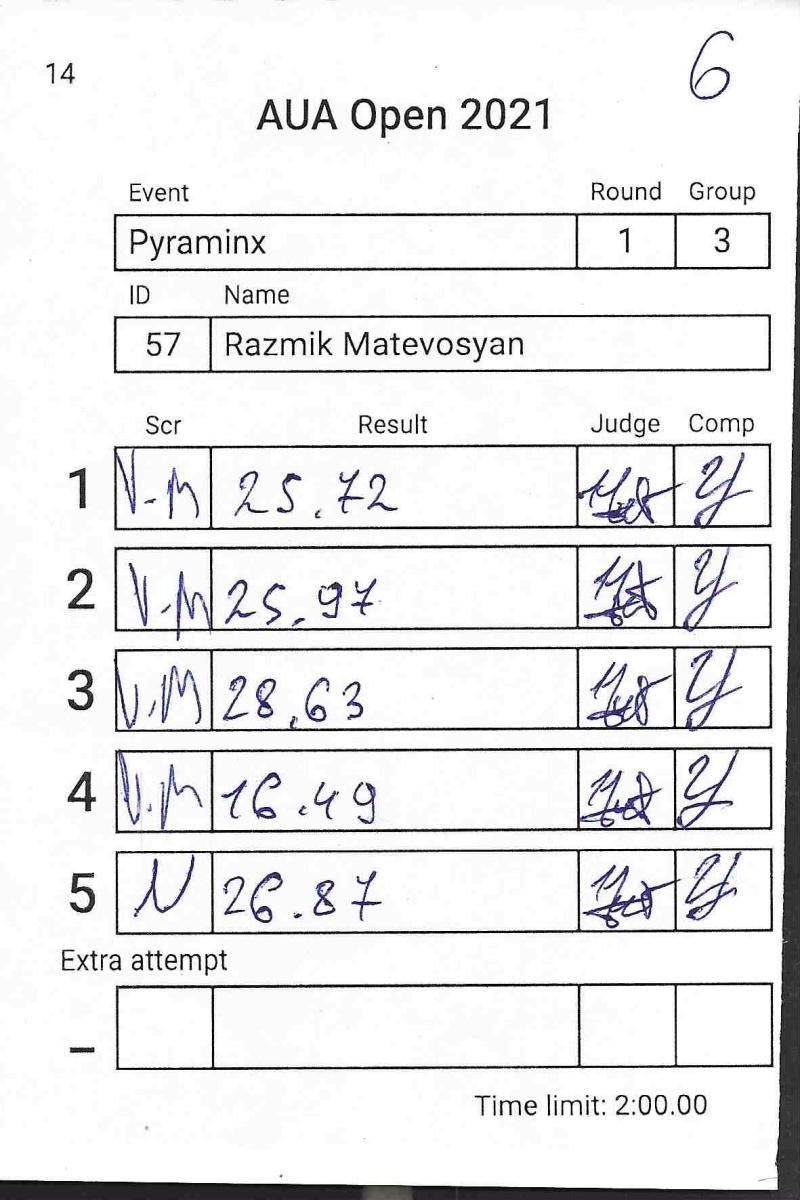 14
6
AUA Open 2021
Event Round Group
Pyraminx 1 3
ID Name
57 Razmik Matevosyan
Scr Result Judge Comp
1 V.M 25.72 Y
2 V.M 25.97 Y
3 V.M 28.63 Y
4 V.M 16.49 Y
5 N 26.87 Y
Extra attempt
–
Time limit: 2:00.00